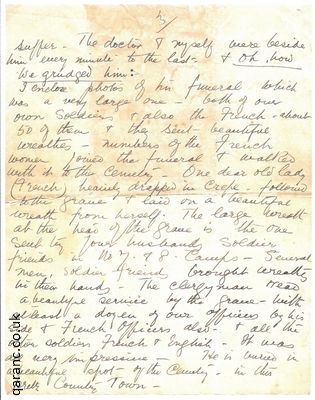 3/
suffer - The doctor & myself were beside
him every minute to the last - & Oh how
we grudged him:
I enclose photos of his funeral - which
was a very large one - both of our
own Soldiers & also the French - about
50 of them & they sent beautiful
wreaths - numbers of the French
women joined the funeral & walked
with it to the Cemetry - One dear old lady
(French) heavily drapped in Crepe - followed
to the grave & laid on a beautiful
wreath from herself. The large wreath
at the head of the grave is the one
sent by your husbands soldier
friends in No 7. & 8. Camps - Several
men, soldier friends brought wreaths
in their hands - The clergyman read
a beautiful service by the grave - with
at least a dozen of our officers by his
side & French Officers also - & all the
other soldiers French & English - It was
all very impressive - He is buried in
a beautiful spot of the Cemetry - in this
Country Town -
qaranc.co.uk